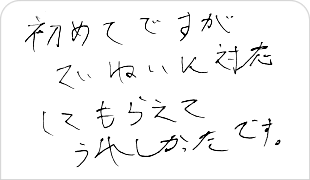 初めてですが
ていねいに対応
してもらえて
うれしかったです。